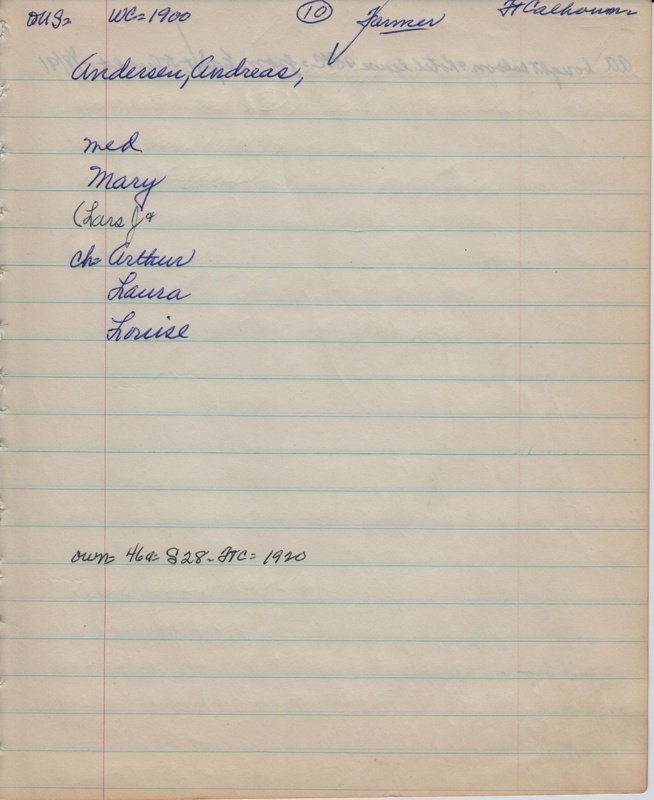 OUS= WC=1900 (10) Farmer Ft Calhoun
Andersen, Andreas,
med
Mary
(Lars J a
ch= Arthur
Laura
Louise
own= 46a= S28- FTC= 1920